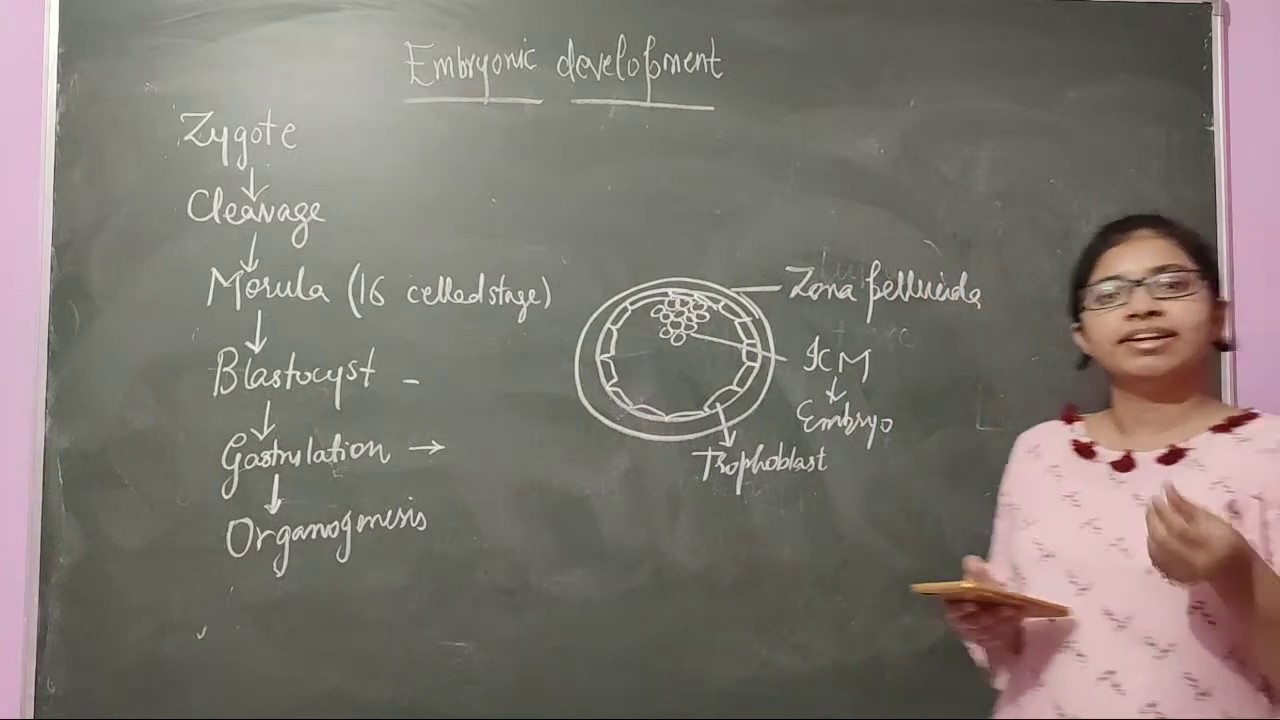 Embryonic development
Zygote
Cleavage
Morula (16 celled stage)
Blastocyst -
Gastrulation →
Organogenesis
Zona pellucida
ICM
Embryo
Trophoblast